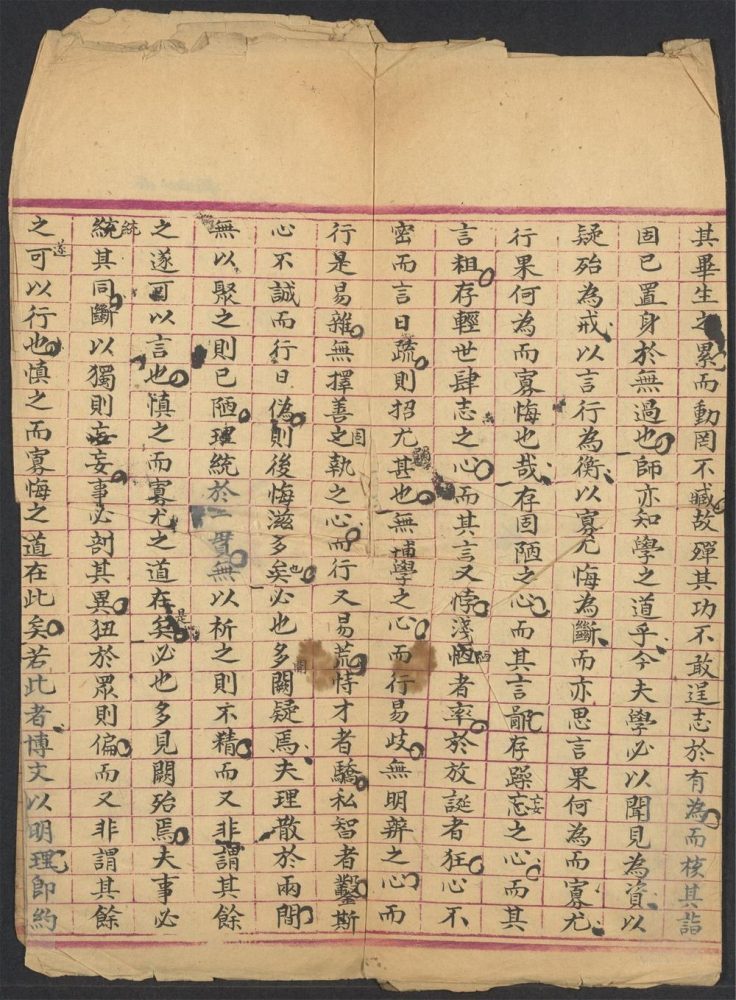 其畢生之累而動罔不臧故殫其功不敢逞志於有為而核其詣
固已置身於無過也師亦知學之道乎今夫學必以聞見為資以
疑殆為戒以言行為衡以寡尤悔為斷而亦思言果何為而寡尤
行果何為而寡悔也哉存固陋之心而其言鄙存躁忘妄之心而其
言粗存輕世肆志之心而其言又悖淺陋者率於放誕者狂心不
密而言日疏則招尤甚也無博學之心而行易歧無明辨之心而
行是易雜無擇善固執之心而行又易荒恃才者驕私智者鑿斯
心不誠而行日偽則後悔滋多矣也必也多聞闕疑焉夫理散於兩間
無以聚之則已陋理統於一貫無以析之則不精而又非謂其餘
之遂可以言也慎之而寡尤之道在是矣必也多見闕殆焉夫事必
統統其同斷以獨則妄事必剖其異狃於眾則偏而又非謂其餘
之遂可以行也慎之而寡悔之道在此矣若此者博文以明理即約